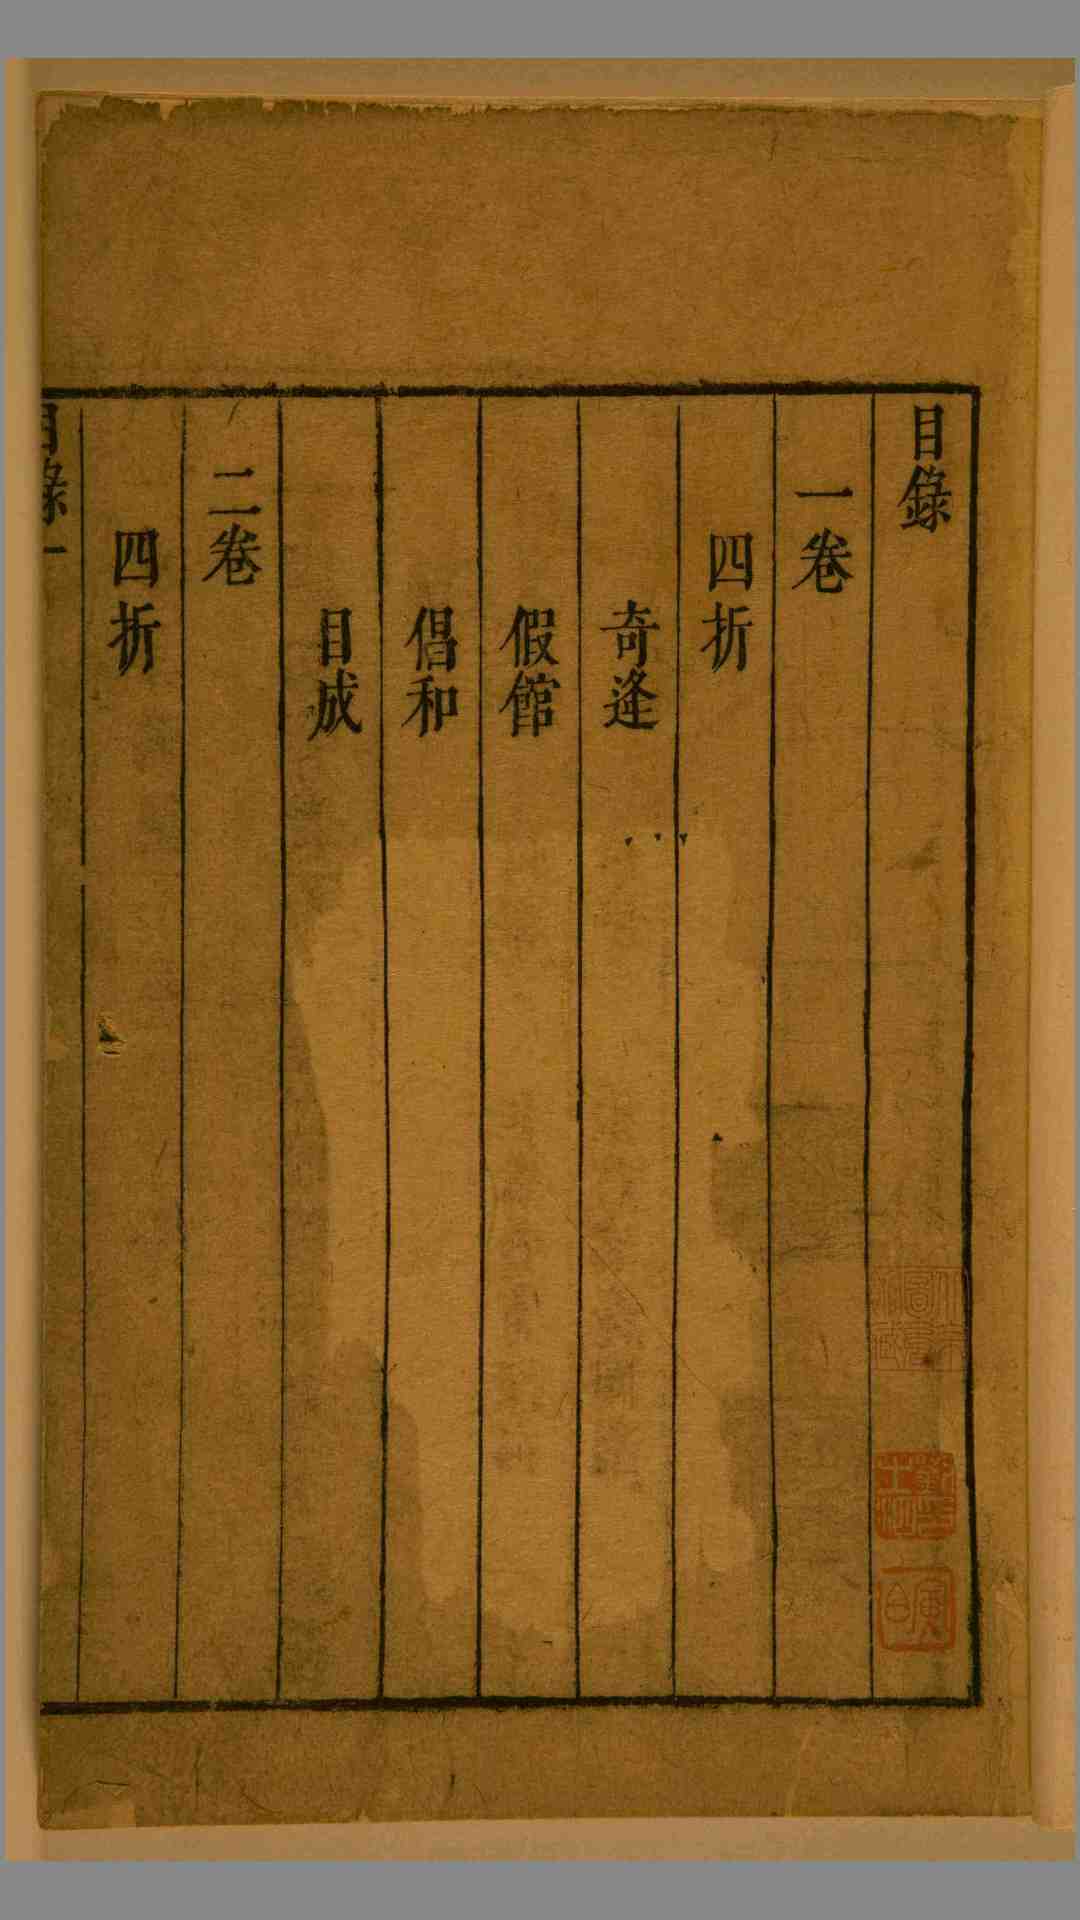 目錄
一卷
四折
奇逢
假館
倡和
目成
二卷
四折
目錄一